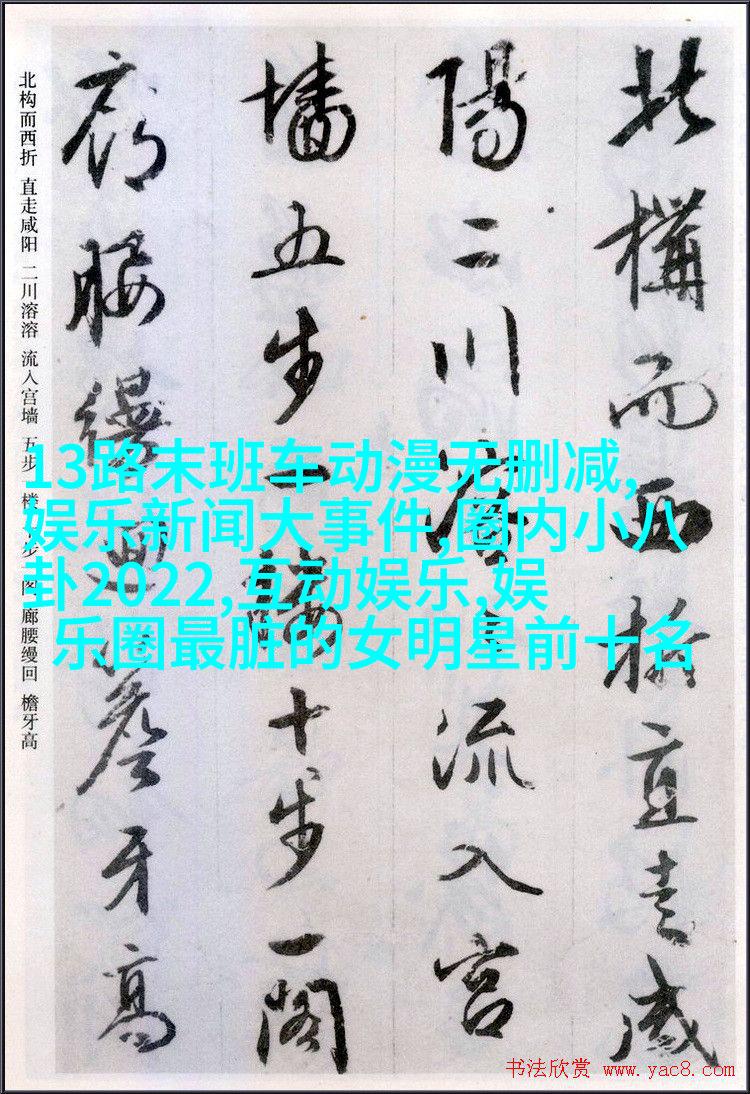 北構而西折直走咸
陽二川溶流入宫
墻五步一樓十步一閣
廊腰縵迴簷牙高
北构而西折 直走咸阳 二川溶溶 流入宫墙 五步 楼 步 阁 廊腰缦回 檐牙高
13路末班车动漫无删减,
娱乐新闻大事件,圈内小八
卦2022,互动娱乐,娱
乐圈最脏的女明星前十名
书法欣赏 www.yac8.com